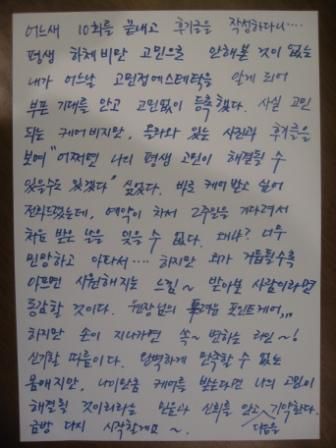 어느새 10회를 끝내고 후기글을 작성하다니....
평생 하체비만 고민으로 안해본 것이 없는
내가 어느날 고민정에스테틱을 알게 되어
부푼 기대를 안고 고민없이 등록했다. 사실 고민
되는 케어비지만, 올라와 있는 사진과 후기글을
보며 "어쩌면 나의 평생 고민이 해결될 수
있을수도 있겠다" 싶었다. 바로 케어 받고 싶어
전화드렸는데, 예약이 차서 2주일을 기다려서
처음 받은 날을 잊을 수 없다. 왜냐? 너무
민망하고 아파서.... 하지만 회가 거듭될수록
아프면서 시원해지는 느낌~ 받아본 사람이라면
동감할 것이다. 원장님의 매려운 포인트케어,,,
하지만 손이 지나가면 쏙~ 변하는 라인~!
신기할 따름이다. 완벽하게 만족할 수 없는
몸매지만, 나머지만큼 케어를 받는다면 나의 고민이
해결될 것이리라는 믿음과 신뢰를 안고 기약한다.
다음을
금방 다시 시작할게요~.